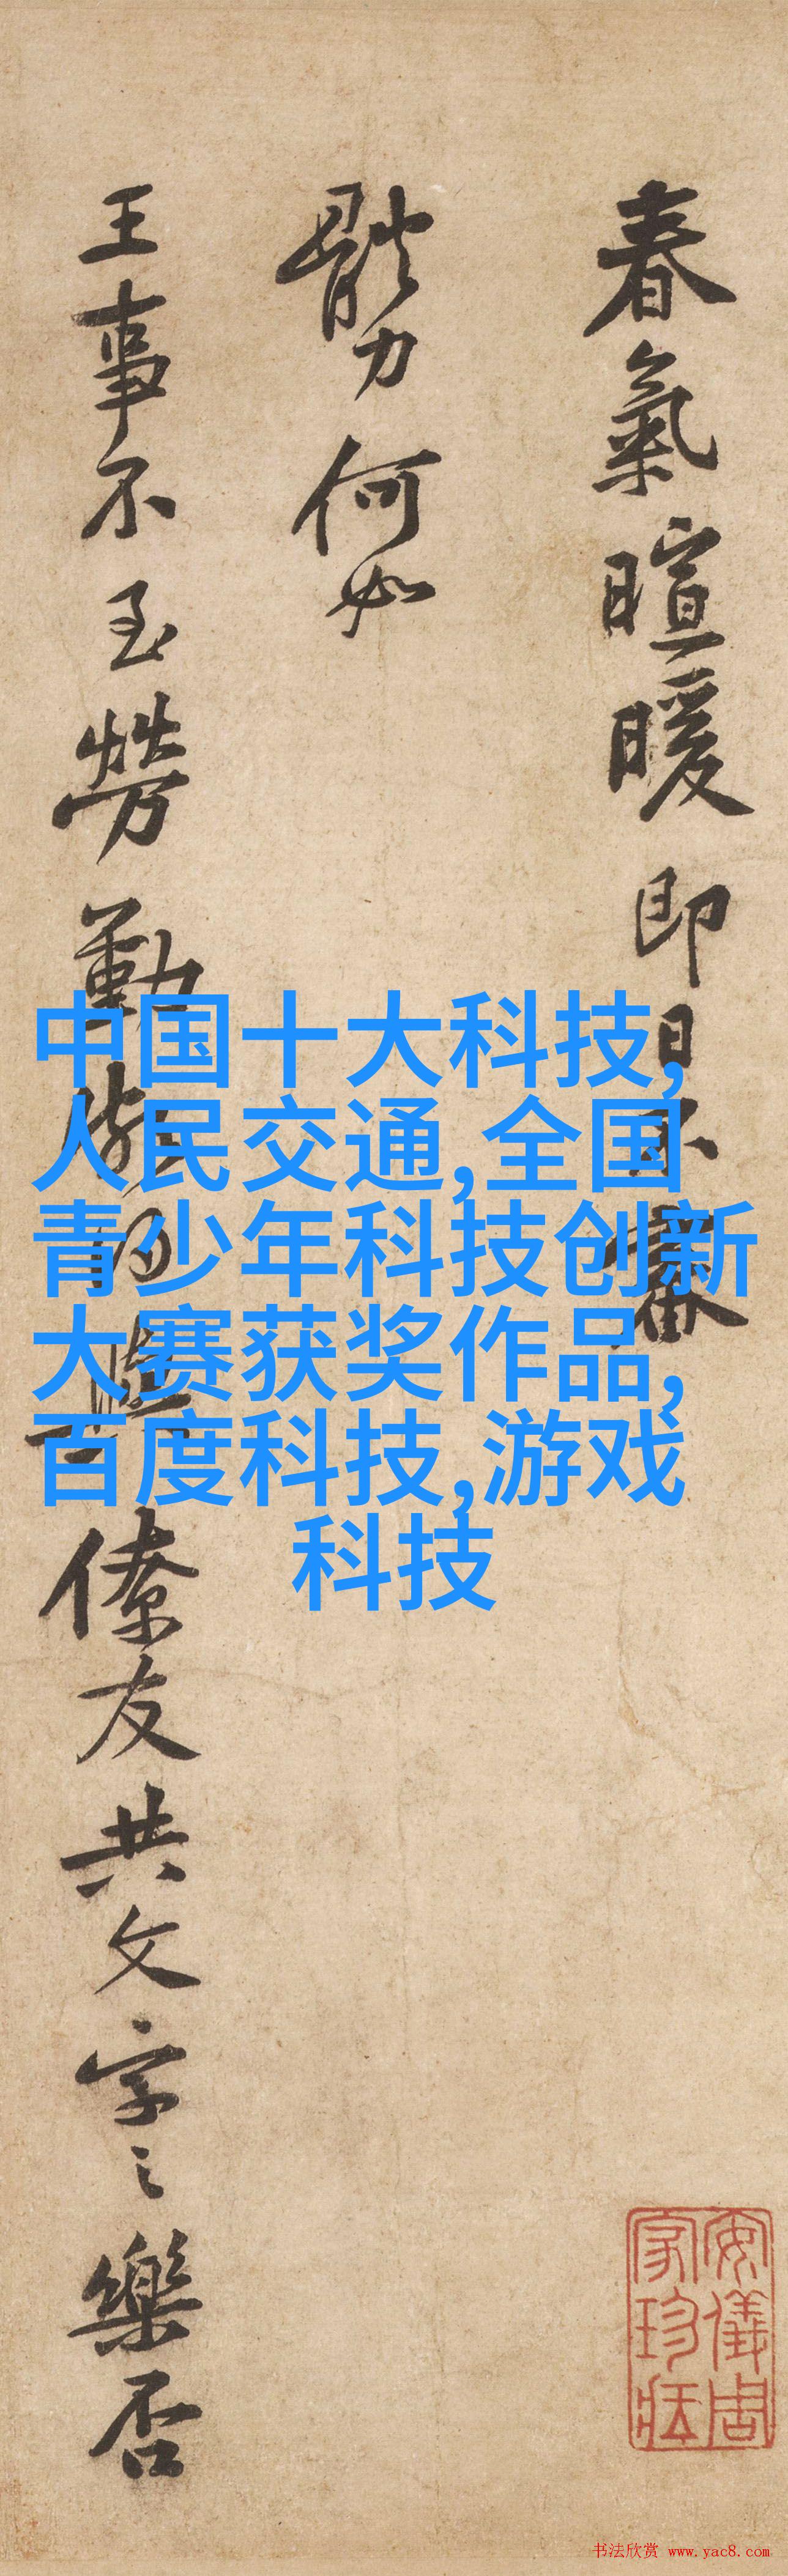 春氣暄暖即日不審
體力何如
王事不至勞勤
與
僚友共文字之樂否
中国十大科技,
人民交通,全国
青少年科技创新
大赛获奖作品,
百度科技,游戏
科技
安儀周
家珍藏
书法欣赏 www.yac8.com